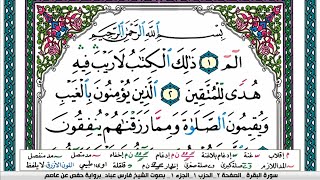 بِسْمِ اللَّهِ الرَّحْمَٰنِ الرَّحِيمِ
الٓمٓ ۝١ ذَٰلِكَ الْكِتَٰبُ لَا رَيْبَ فِيهِ
هُدًى لِّلْمُتَّقِينَ ۝٢ الَّذِينَ يُؤْمِنُونَ بِالْغَيْبِ
وَيُقِيمُونَ الصَّلَوٰةَ وَمِمَّا رَزَقْنَٰهُمْ يُنفِقُونَ
سورة البقرة . الصفحة ٢ . الحزب ١ . الجزء ١ . بصوت الشيخ فارس عباد برواية حفص عن عاصم